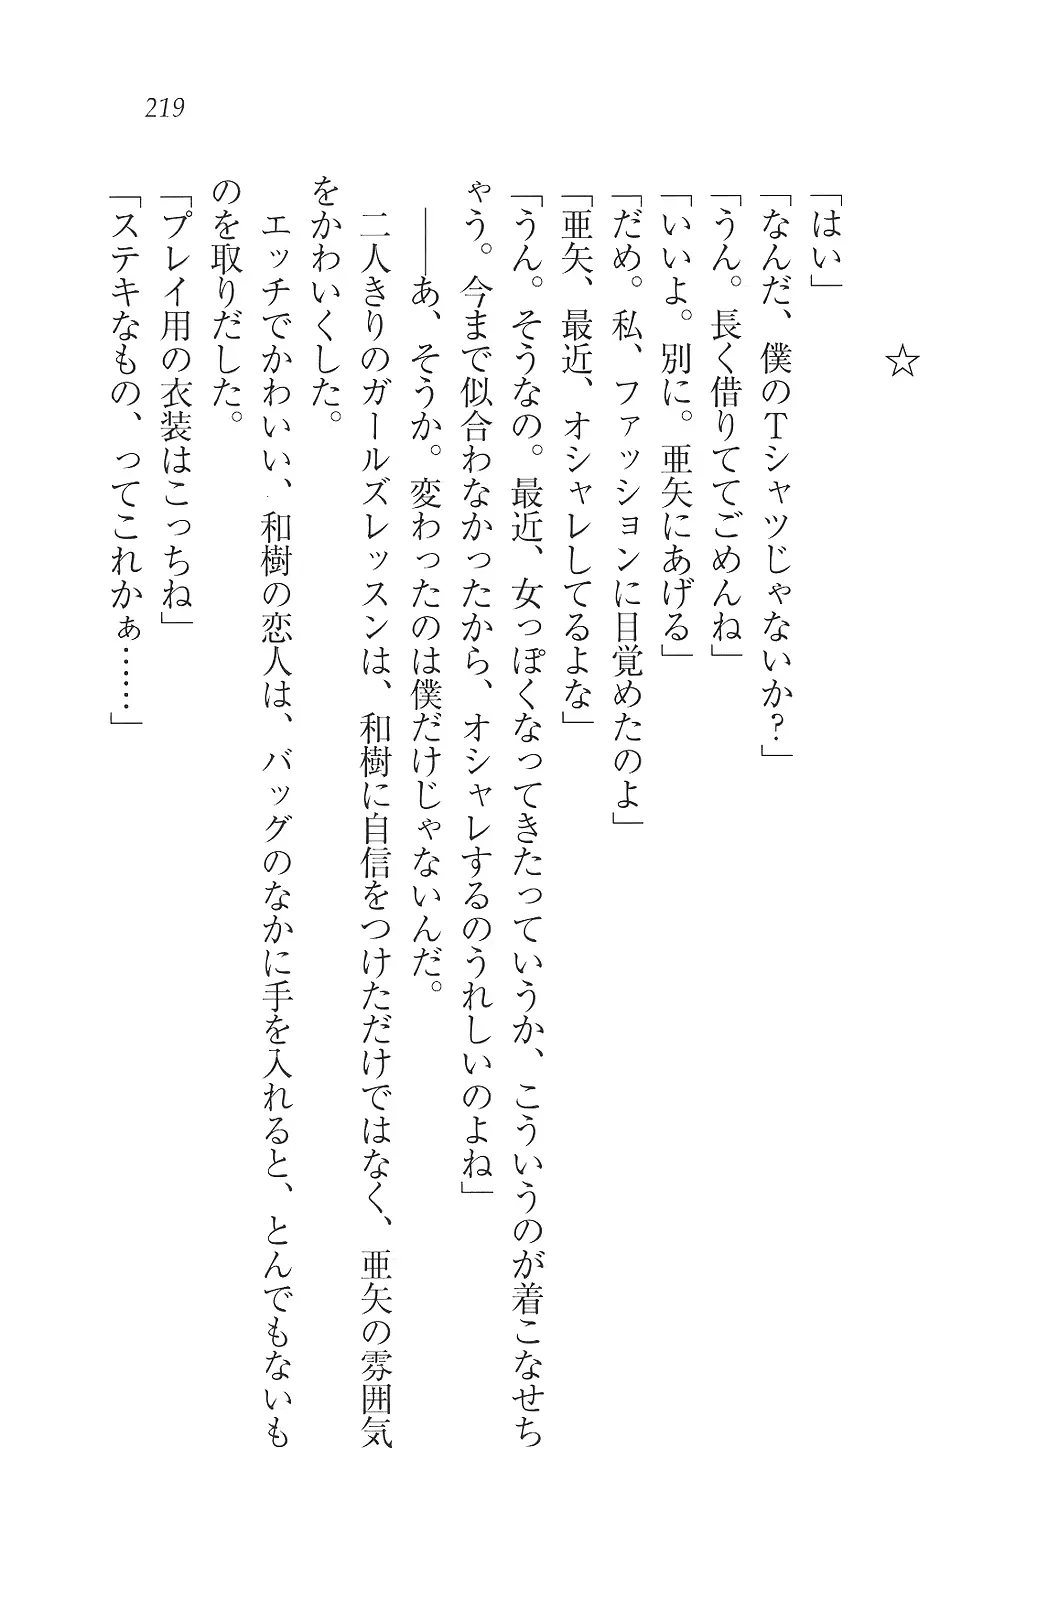 219
☆
「はい」
「なんだ、僕のTシャツじゃないか?」
「うん。長く借りててごめんね」
「いいよ。別に。亜矢にあげる」
「だめ。私、ファッションに目覚めたのよ」
「亜矢、最近、オシャレしてるよな」
「うん。そうなの。最近、女っぽくなってきたっていうか、こういうのが着こなせち
ゃう。今まで似合わなかったから、オシャレするのうれしいのよね」
――あ、そうか。変わったのは僕だけじゃないんだ。
二人きりのガールズレッスンは、和樹に自信をつけただけではなく、亜矢の雰囲気
をかわいくした。
エッチでかわいい、和樹の恋人は、バッグのなかに手を入れると、とんでもないも
のを取りだした。
「プレイ用の衣装はこっちね」
「ステキなもの、ってこれかぁ……」